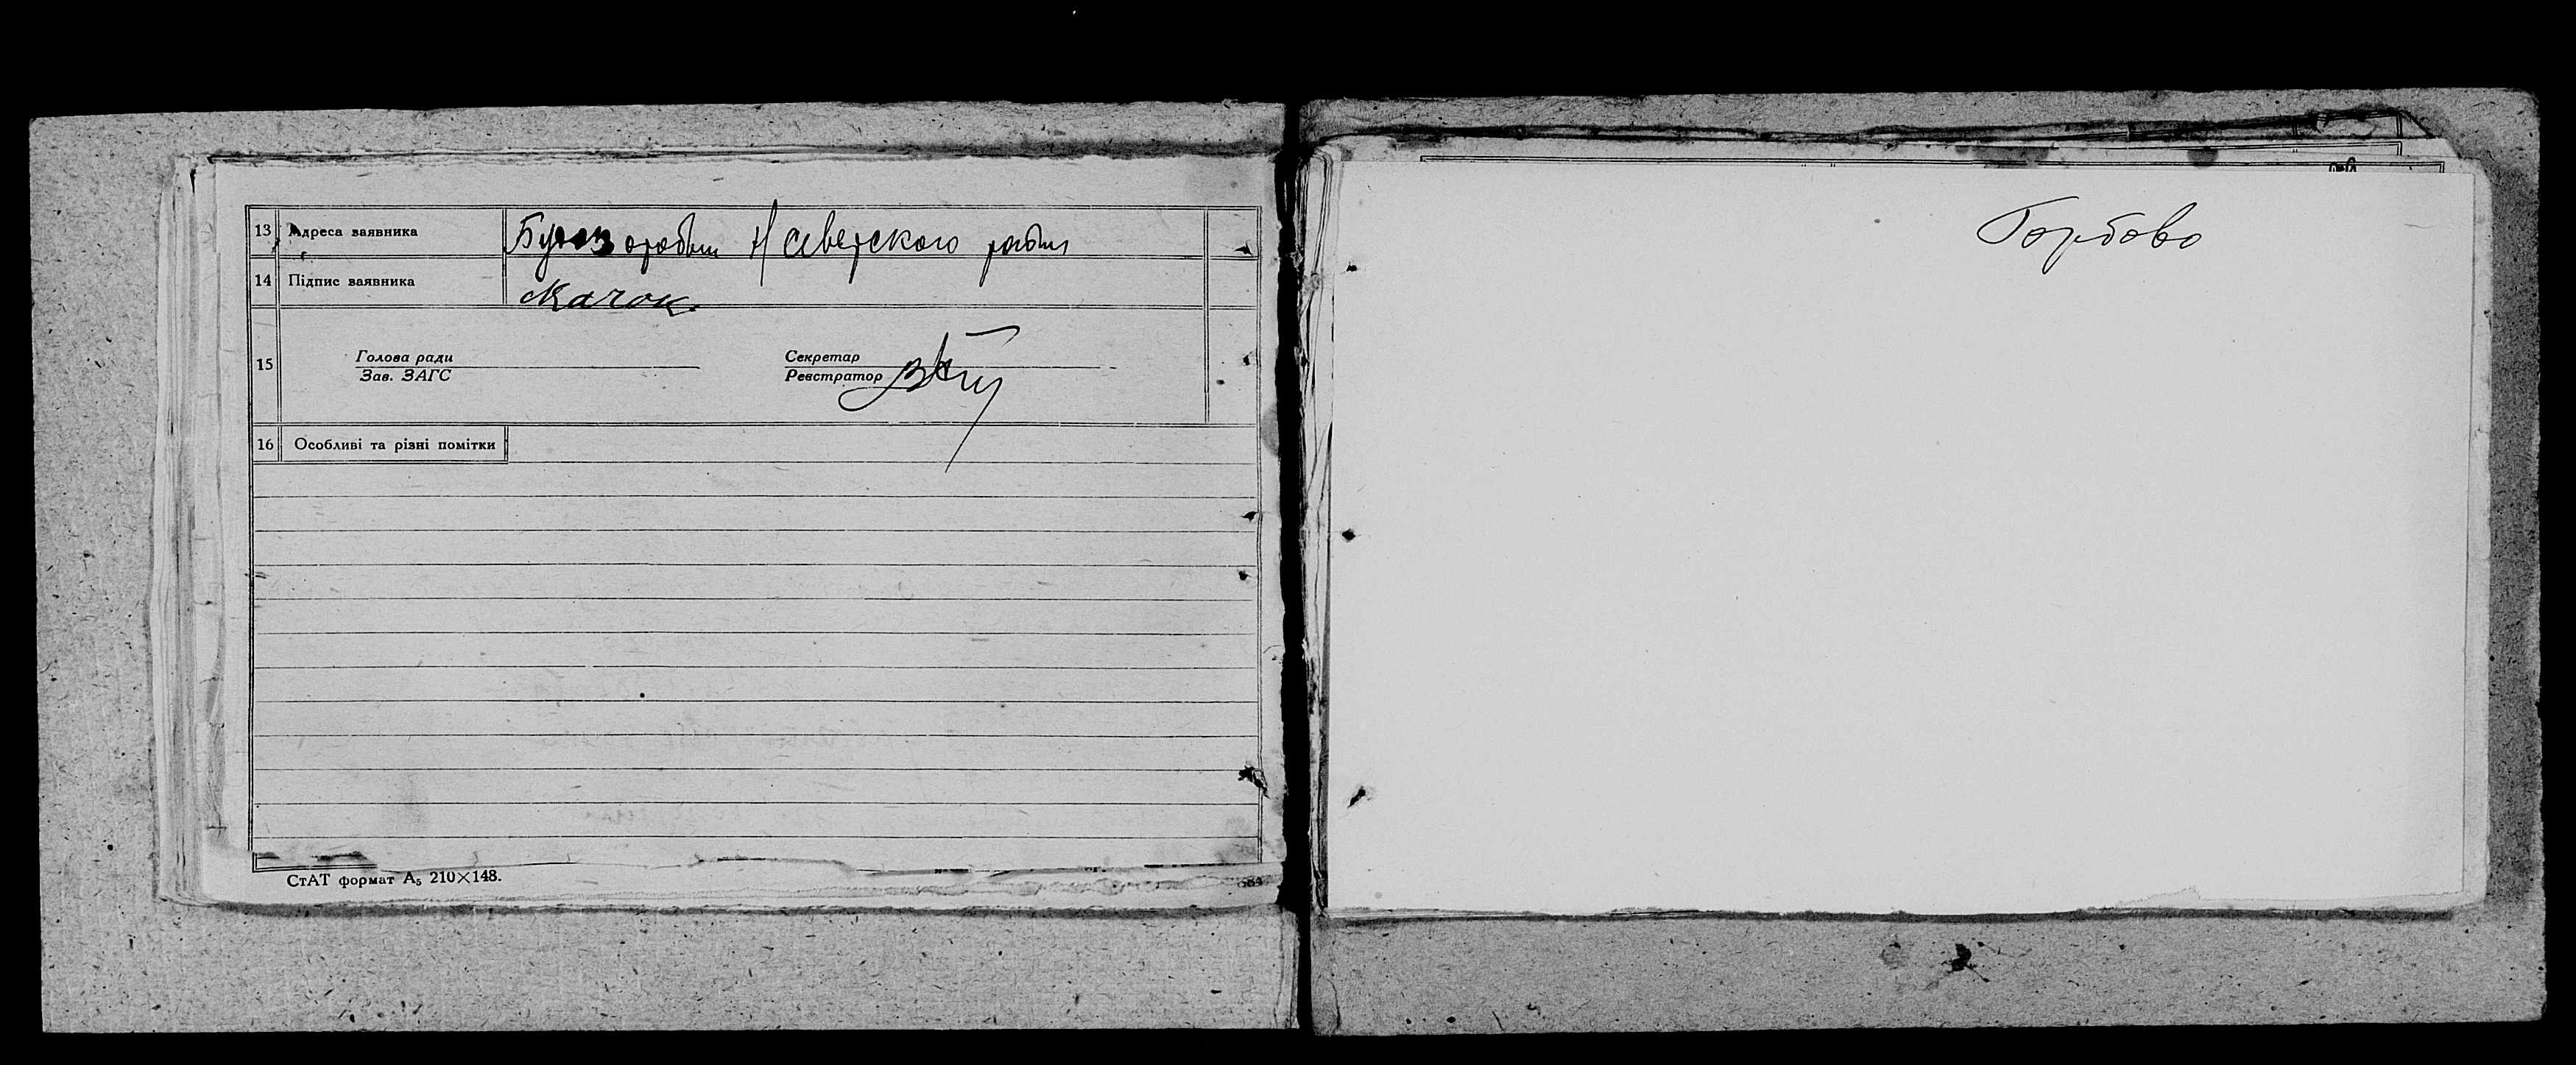 13 Адреса заявника
14 Підпис заявника Качок.
15 Голова ради Секретар
Зав. ЗАГС Реєстратор
16 Особливі та різні помітки
СтАТ формат А₅ 210×148.
Горбово